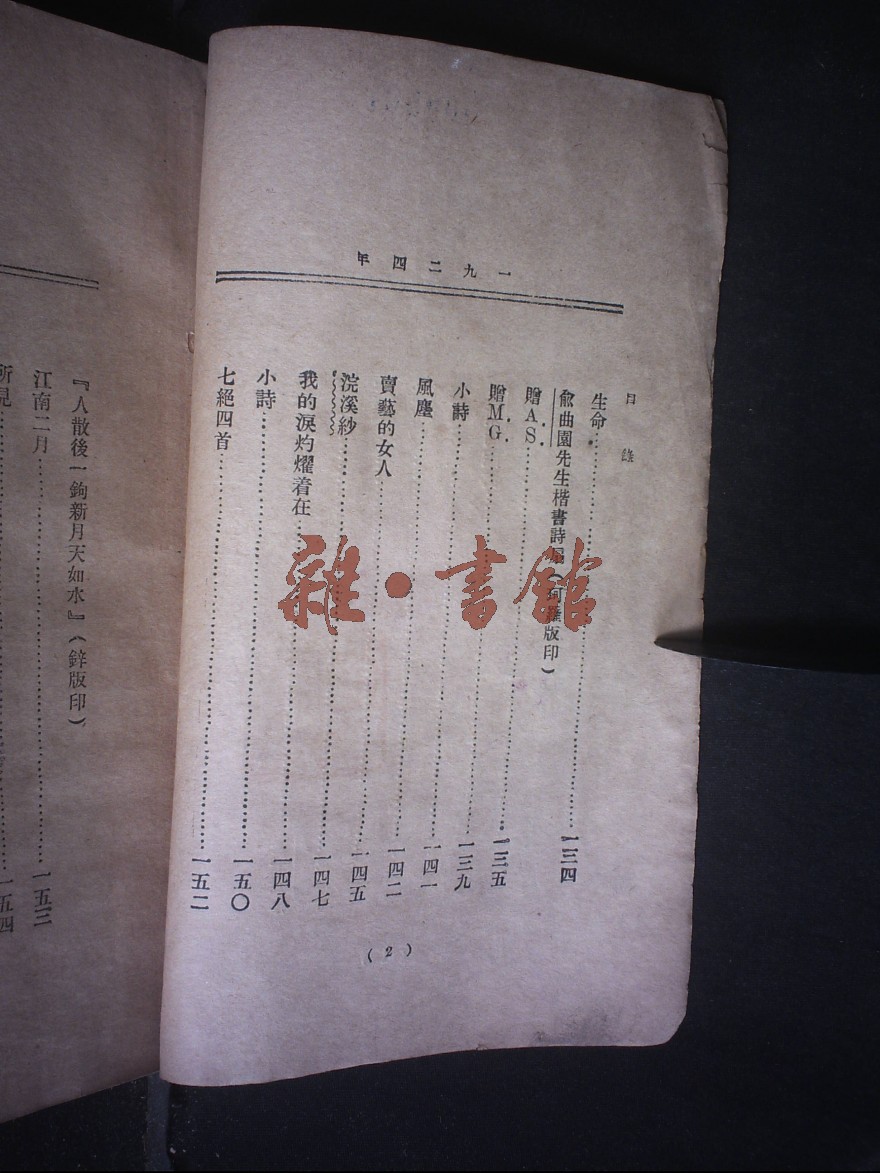 一九二四年
目錄
生命……一三四
兪曲園先生楷書詩扇（珂羅版印）
贈A.S.……一三五
贈M.G.……一三九
小詩……一四一
風塵……一四二
賣藝的女人……一四五
浣溪紗……一四七
我的淚灼燿着在……一四八
小詩……一五〇
七絕四首……一五二
(2)
『人散後一鉤新月天如水』（鋅版印）
江南二月……一五三
所見……一五四
雜·書館